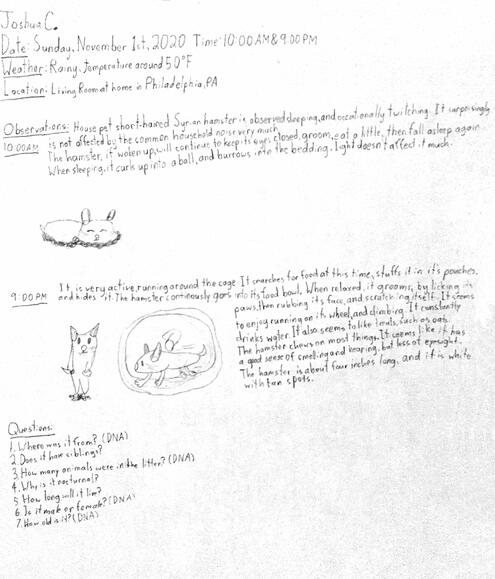 Joshua C.
Date: Sunday, November 1st, 2020 Time: 10:00 AM & 9:00 PM
Weather: Rainy, temperature around 50°F
Location: Living Room at home in Philadelphia, PA
Observations: House pet short-haired Syrian hamster is observed sleeping, and occationally twitching. It surprisingly
10:00AM is not affected by the common household noise very much.
The hamster, if woken up, will continue to keep its eyes closed, groom, eat a little, then fall asleep again.
When sleeping, it curls up into a ball, and burrows into the bedding. Light doesn't affect it much.
9:00 PM It is very active, running around the cage. It searches for food at this time, stuffs it in it's pouches,
and hides it. The hamster continuously goes into its food bowl. When relaxed, it grooms, by licking its
paws, then rubbing its face, and scratching itself. It seems
to enjoy running on its wheel, and climbing. It constantly
drinks water. It also seems to like treats, such as oats.
The hamster chews on most things. It seems like it has
a good sense of smelling and hearing, but less of eyesight.
The hamster is about four inches long, and it is white
with tan spots.
Questions:
1. Where was it from? (DNA)
2. Does it have siblings?
3. How many animals were in the litter? (DNA)
4. Why is it nocturnal?
5. How long will it live?
6. Is it male or female? (DNA)
7. How old is it? (DNA)